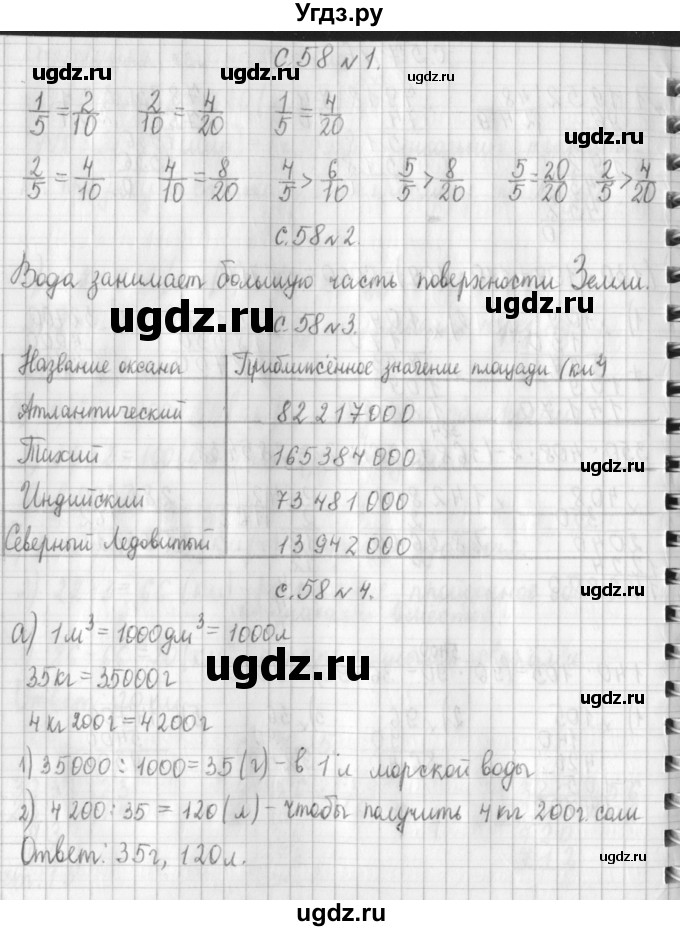 Угдз.ру
с.58 №1.
ugdz.ru ugdz.ru
1/5 = 2/10 2/10 = 4/20 1/5 = 4/20
ugdz.ru
2/5 = 4/10 4/10 = 8/20 4/5 > 6/10 5/5 > 8/20 5/5 = 20/20 2/5 > 4/20
с.58 №2.
Вода занимает большую часть поверхности Земли.
ugdz.ru ugdz.ru
с.58 №3.
Название океана Приближённое значение площади (км²)
Атлантический 82 217 000
Тихий 165 384 000
ugdz.ru
Индийский 73 481 000
Северный Ледовитый 13 942 000
с.58 №4.
а) 1м³ = 1000дм³ = 1000л
ugdz.ru
35кг = 35000г
ugdz.ru
4кг 200г = 4200г
1) 35000 : 1000 = 35 (г) - в 1 л морской воды
2) 4200 : 35 = 120 (л) - чтобы получить 4 кг 200г. соли
Ответ: 35г, 120л.
ugdz.ru
ugdz.ru